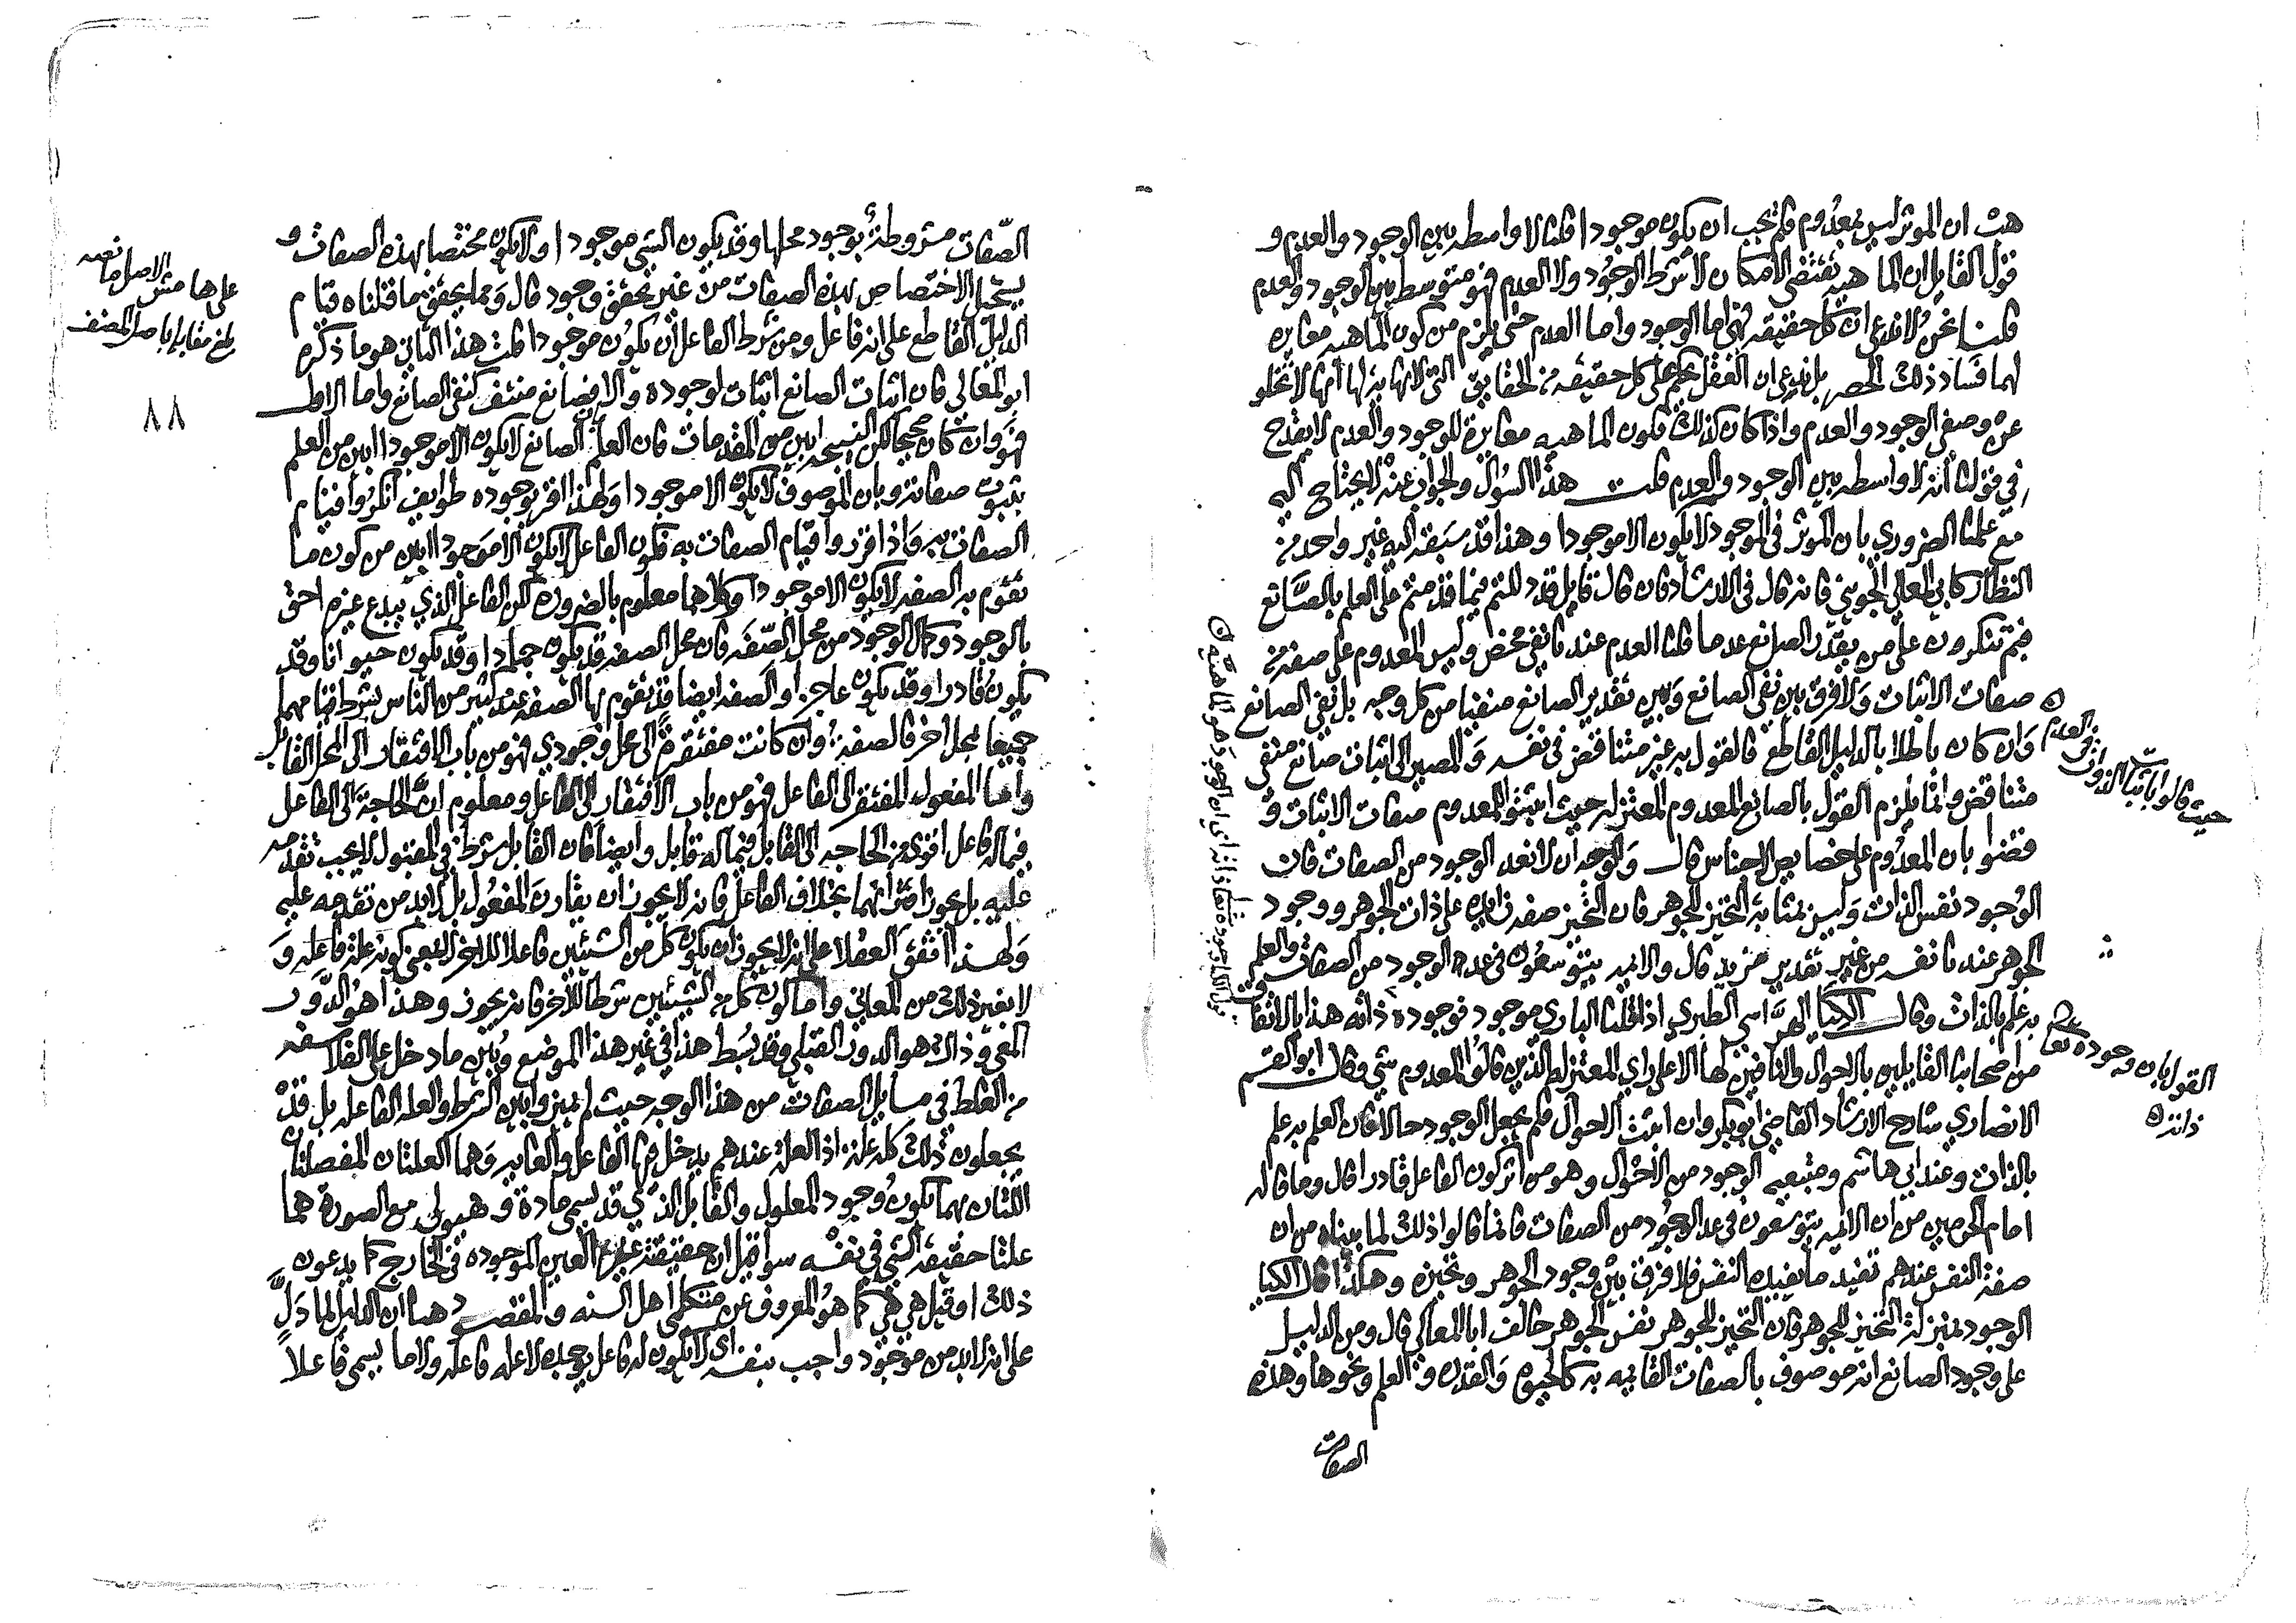 هب ان الموثر ليس بمعدوم فلم يجب ان يكون موجودا قلنا لا واسطه بين الوجود والعدم و
قول القايل ان الماهيه تقتضي الامكان لا بشرط الوجود ولا العدم فهو متوسط بين الوجود والعدم
قلنا نحن لا ندعي ان كل حقيقه فهي اما الوجود واما العدم حتى يلزم من كون الماهيه مغايره
لهما فساد ذلك الحصر بل ندعي ان العقل يحكم على كل حقيقه من الحقايق التي لا نهايه لها انها لا تخلو
عن وصفي الوجود والعدم واذا كان كذلك فكون الماهيه مغايرة للوجود والعدم لا يقدح
في قولنا انه لا واسطه بين الوجود والعدم قلت هذا السؤال والجواب عنه لا يحتاج اليه
مع علمنا الضروري بان الموثر في الموجود لا يكون الا موجودا وهذا قد سبقه اليه غير واحد من
النظار كابي المعالي الجويني فانه قال في الارشاد فان قال قايل قد دللتم فيما قدمتم على العلم بالصانع
فبم تنكرون على من يقدر الصانع عدما قلنا العدم عندنا نفي محض وليس المعدوم على صفه من
صفات الاثبات ولا فرق بين نفي الصانع وبين تقدير الصانع منفيا من كل وجه بل نفي الصانع
وان كان باطلا بالدليل القاطع فالقول به غير متناقض في نفسه والمصير الى اثبات صانع منفي
متناقض وانما يلزم القول بالصانع المعدوم المعتزله حيث اثبتوا للمعدوم صفات الاثبات و
قضوا بان المعدوم على خصايص الاجناس قال والوجه ان لا نعد الوجود من الصفات فان
الوجود نفس الذات وليس بمثابة التحيز للجوهر فان التحيز صفه زايده على ذات الجوهر ووجود
الجوهر عندنا نفسه من غير تقدير مزيد قال والايمه يتوسعون في عد الوجود من الصفات والعلم
به علم بالذات وقال الكيا الهراسي الطبري اذا قلنا الباري موجود فوجوده ذاته هذا بالاتفاق
من اصحابنا القايلين بالاحوال والنافين لها الا على راي المعتزله الذين قالوا المعدوم شي وقال ابو القسم
الانصاري شارح الارشاد القاضي ابو بكر وان اثبت الاحوال فلم يجعل الوجود حالا فان العلم به علم
بالذات وعند ابي هاشم ومتبعيه الوجود من الاحوال وهو من اثر كون الفاعل قادرا قال وما قاله
امام الحرمين من ان الايمه يتوسعون في عد الوجود من الصفات فانما قالوا ذلك لما بيناه من ان
صفة النفس عندهم تفيد ما يفيده النفس فلا فرق بين وجود الجوهر وتحيزه وهكذا قال الكيا
الوجود بمنزلة التحيز للجوهر فان التحيز للجوهر نفس الجوهر خالف ابا المعالي قال ومن الدليل
على وجود الصانع انه موصوف بالصفات القايمه به كالحيوه والقدره والعلم ونحوها وهذه
الصفات
حيث قالوا باثبات الذوات في العدم
القول بان وجوده تعالى
ذاته
الصفات مشروطة بوجود محلها وقد يكون الشي موجودا ولا يكون مختصا بهذه الصفات و
يستحيل الاختصاص بهذه الصفات من غير تحقق وجود قال ومما يحقق ما قلناه قيام
الدليل القاطع على انه فاعل ومن شرط الفاعل ان يكون موجودا قلت هذا الثاني هو ما ذكره
ابو المعالي فان اثبات الصانع اثبات لوجوده والا فصانع منتف كنفي الصانع واما الاول
فهو وان كان صحيحا لكن النتيجه ابين من المقدمات فان العلم بان الصانع لا يكون الا موجودا ابين من العلم
بثبوت صفاته وبان الموصوف لا يكون الا موجودا ولهذا اقر بوجوده طوايف انكروا قيام
الصفات به واذا قرروا قيام الصفات به فكون الفاعل لا يكون الا موجودا ابين من كون ما
تقوم به الصفه لا يكون الا موجودا وكلاهما معلوم بالضروره لكن الفاعل الذي يبدع غيره احق
بالوجود وكمال الوجود من محل الصفه فان محل الصفه قد يكون جمادا وقد يكون حيوانا وقد
يكون قادرا وقد يكون عاجزا والصفه ايضا قد تقوم بها الصفه عند كثير من الناس بشرط قيامهما
جميعا بمحل اخر فالصفه وان كانت مفتقرة الى محل وجودي فهو من باب الافتقار الى المحل القابل
واما المفعول المفتقر الى الفاعل فهو من باب الافتقار الى الفاعل ومعلوم ان الحاجة الى الفاعل
فيما له فاعل اقوى من الحاجه الى القابل فيما له قابل وايضا فان القابل شرط في المقبول لا يجب تقدمه
عليه بل يجوز اقترانهما بخلاف الفاعل فانه لا يجوز ان يقارن المفعول بل لا بد من تقدمه عليه
ولهذا اتفق العقلا على انه لا يجوز ان يكون كل من الشيئين فاعلا للاخر لا بمعنى كونه علة فاعله و
لا بغير ذلك من المعاني واما كون كل من الشيئين شرطا للاخر فانه يجوز وهذا هو الدور
المعي وذاك هو الدور القبلي وقد بسط هذا في غير هذا الموضع وبين ما دخل على الفلاسفه
من الغلط في مسايل الصفات من هذا الوجه حيث لم يميزوا بين الشرط والعله الفاعله بل قد
يجعلون ذلك كله علة اذ العلة عندهم يدخل فيها الفاعل والغايه وهما العلتان المنفصلتان
اللتان بهما يكون وجود المعلول والقابل الذي قد يسمى مادة وهيولى مع الصورة هما
علتا حقيقة الشي في نفسه سوا قيل ان حقيقته غير العين الموجوده في الخارج كما يدعون
ذلك او قيل هي هي كما هو المعروف عن متكلمي اهل السنه والمقصود هنا ان الدليل لما دل
على انه لا بد من موجود واجب بنفسه اي لا يكون له فاعل يوجده لا علة فاعله ولا ما يسمى فاعلا
بلغ مقابله باصل المصنف
٨٨